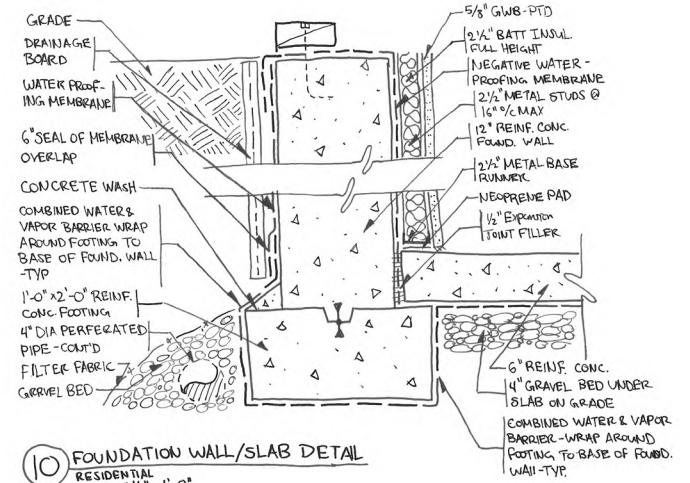 GRADE
DRAINAGE
BOARD
WATER PROOF-
ING MEMBRANE
6" SEAL OF MEMBRANE
OVERLAP
CONCRETE WASH
COMBINED WATER &
VAPOR BARRIER WRAP
AROUND FOOTING TO
BASE OF FOUND. WALL
-TYP
1'-0" x 2'-0" REINF.
CONC. FOOTING
4" DIA PERFERATED
PIPE-CONT'D
FILTER FABRIC
GRAVEL BED
5/8" GWB-PTD
2 1/2" BATT INSUL.
FULL HEIGHT
NEGATIVE WATER-
PROOFING MEMBRANE
2 1/2" METAL STUDS @
16" O/C MAX
12" REINF. CONC.
FOUND. WALL
2 1/2" METAL BASE
RUNNER
NEOPRENE PAD
1/2" EXPANSION
JOINT FILLER
6" REINF. CONC.
4" GRAVEL BED UNDER
SLAB ON GRADE
COMBINED WATER & VAPOR
BARRIER-WRAP AROUND
FOOTING TO BASE OF FOUND.
WALL-TYP.
10 FOUNDATION WALL/SLAB DETAIL
RESIDENTIAL